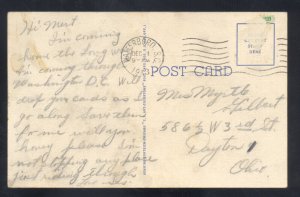 Hi Mert
I'm coming
home the long way
I'm coming through
Washington D.C. I'll
drop you cards as I
go along Save them
for me will you
honey please I'm
not stopping any place
just riding through
POST CARD
DEC
Miss Myrtle
Gilbert
586½ W 3rd St.
Dayton 7
Ohio